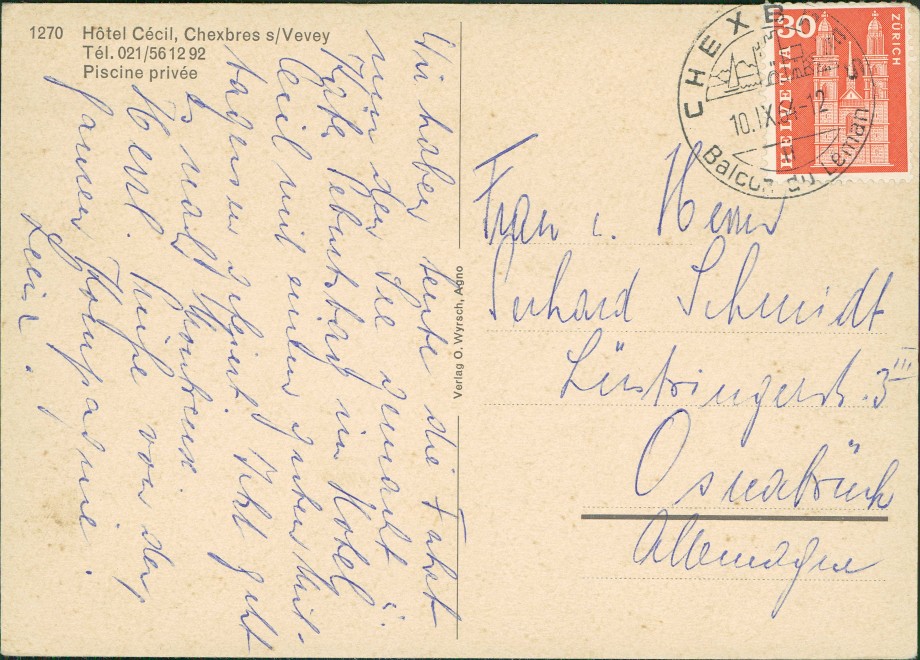 1270 Hôtel Cécil, Chexbres s/Vevey
Tél. 021/56 12 92
Piscine privée
Wir haben heute die Fahrt
um den See gemacht u.
Käte's Geburtstag im Hotel
Cecil mit einem guten Mit-
tagessen gefeiert. Jetzt geht
es nach Montreux.
Herzl. Grüße von der
ganzen Kompagnie.
Verlag O. Wyrsch, Agno
CHEXB
10.IX
-12
Balcon du Léman
30
HELVETIA
ZÜRICH
Frau u. Herrn
Gerhard Schmidt
Lüstringerstr. 3 III
Osnabrück
Allemagne